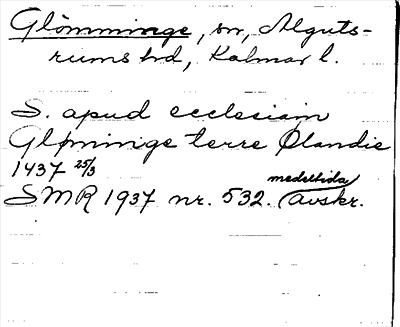 Glömminge, sn, Alguts-
rums hd, Kalmar l.
S. apud ecclesiam
Glømminge terre Ølandie
1437 25/3
SMR 1937 nr. 532. medeltida avskr.